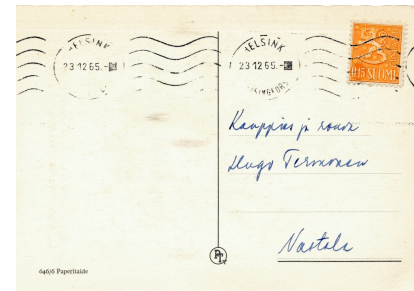 HELSINKI
23.12.65.-
HELSINKI
23.12.65.-
HELSINGFORS
0,15 SUOMI
Kauppias ja rouva
Hugo Termonen
Nastola
PT
646/6 Paperitaide